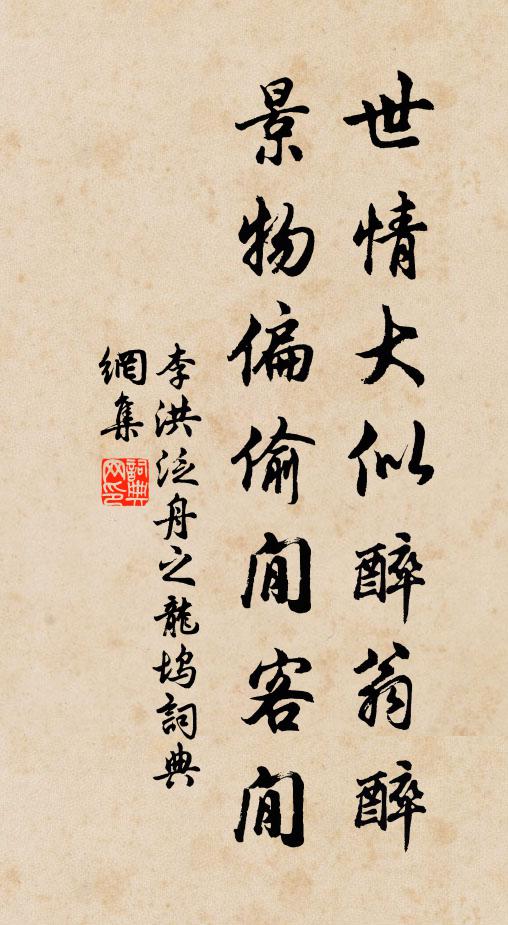 世情大似醉翁醉
景物偏偷閒客閒
李洪泛舟之龍塢詞典
網集
詞典網印